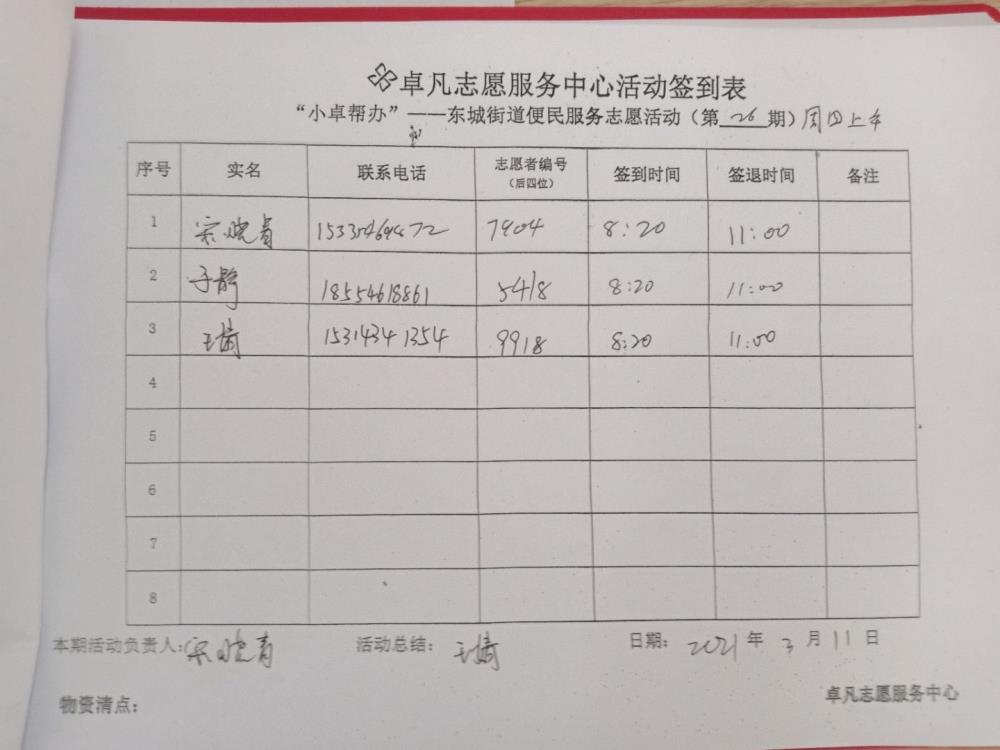 卓凡志愿服务中心活动签到表
“小卓帮办”——东城街道便民服务志愿活动（第 26 期）周四上午
序号 实名 联系电话 志愿者编号（后四位） 签到时间 签退时间 备注
1 宋晓青 7904 8:20 11:00
2 于静 18554618861 5418 8:20 11:00
3 王埼 15314341354 9918 8:20 11:00
4
5
6
7
8
本期活动负责人：宋晓青 活动总结：王埼 日期：2021年3月11日
物资清点：
卓凡志愿服务中心